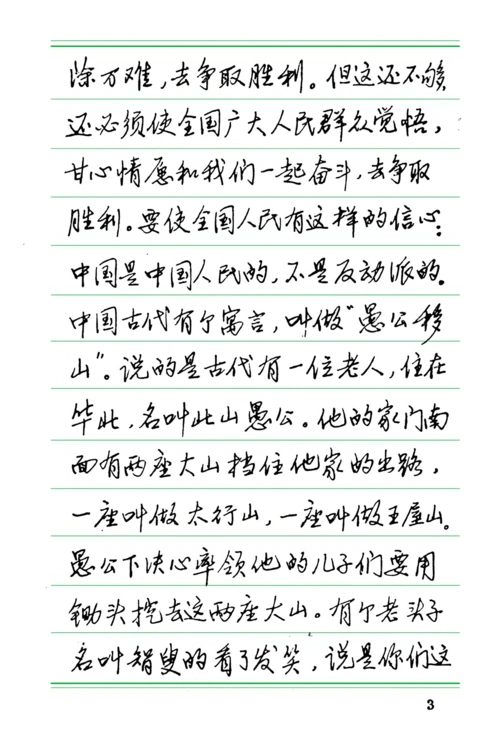 除万难，去争取胜利。但这还不够，
还必须使全国广大人民群众觉悟，
甘心情愿和我们一起奋斗，去争取
胜利。要使全国人民有这样的信心：
中国是中国人民的，不是反动派的。
中国古代有个寓言，叫做“愚公移
山”。说的是古代有一位老人，住在
华北，名叫北山愚公。他的家门南
面有两座大山挡住他家的出路，
一座叫做太行山，一座叫做王屋山。
愚公下决心率领他的儿子们要用
锄头挖去这两座大山。有个老头子
名叫智叟的看了发笑，说是你们这
3